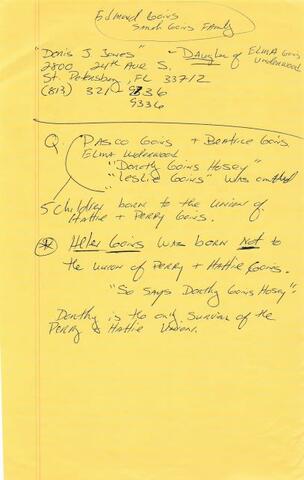 Edmond Goins
Sarah Goins Family
"Doris J. Jones" - Daughter of ELMA Goins Underwood
2800 24th Ave S.
St. Petersburg, FL 33712
(813) 321-9336
9336
Q. PASCO Goins + Beatrice Goins
ELMA Underwood
"Dorothy Goins Hosey"
"Leslie Goins" was
5 Children born to the Union of
Hattie + Perry Goins.
* Helen Goins was born not to
the union of Perry + Hattie Goins.
"So says Dorothy Goins Hosey".
Dorothy is the only survivor of the
Perry & Hattie Union.